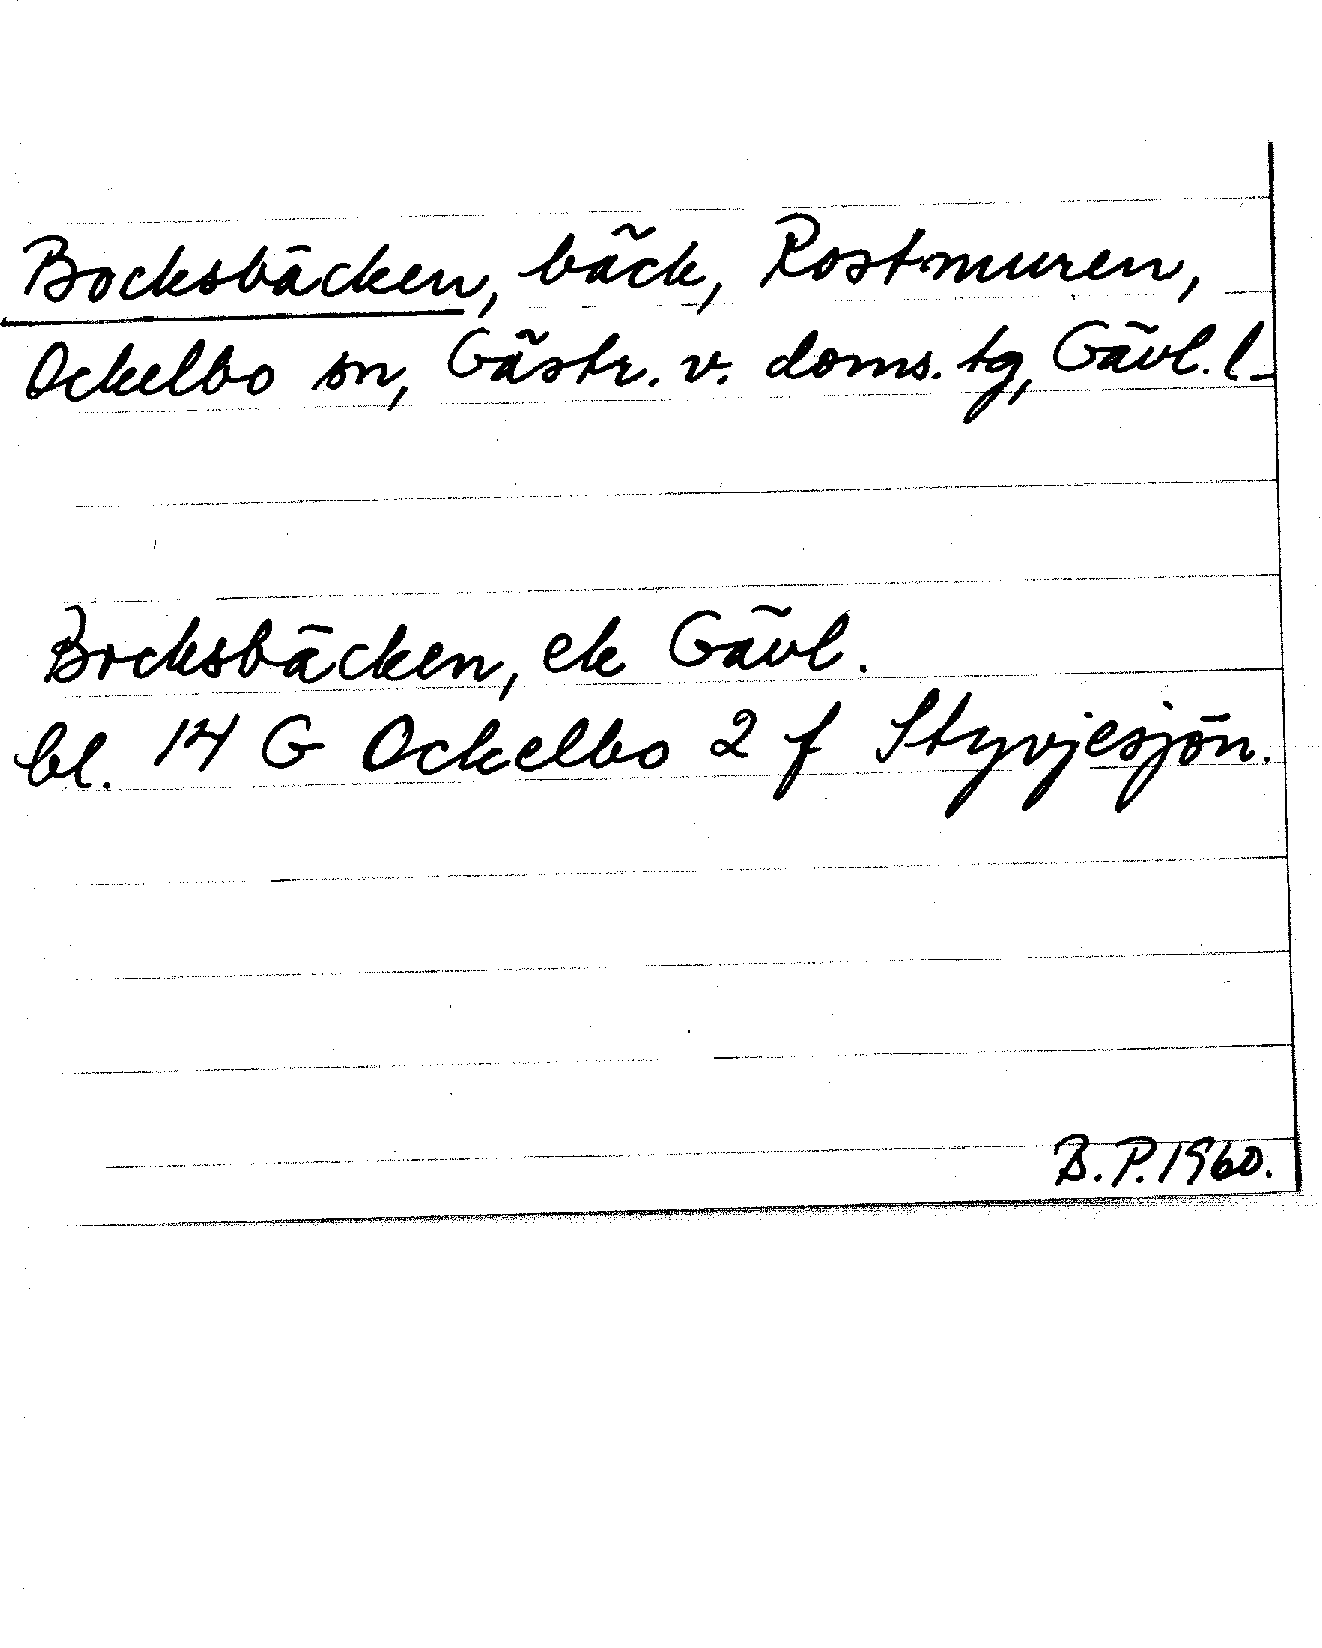 Bocksbäcken, bäck, Rostmuren,
Ockelbo sn, Gästr. v. doms. tg, Gävl. l.
Bocksbäcken, ek Gävl.
bl. 14 G Ockelbo 2 f Styvjesjön.
B.P. 1960.